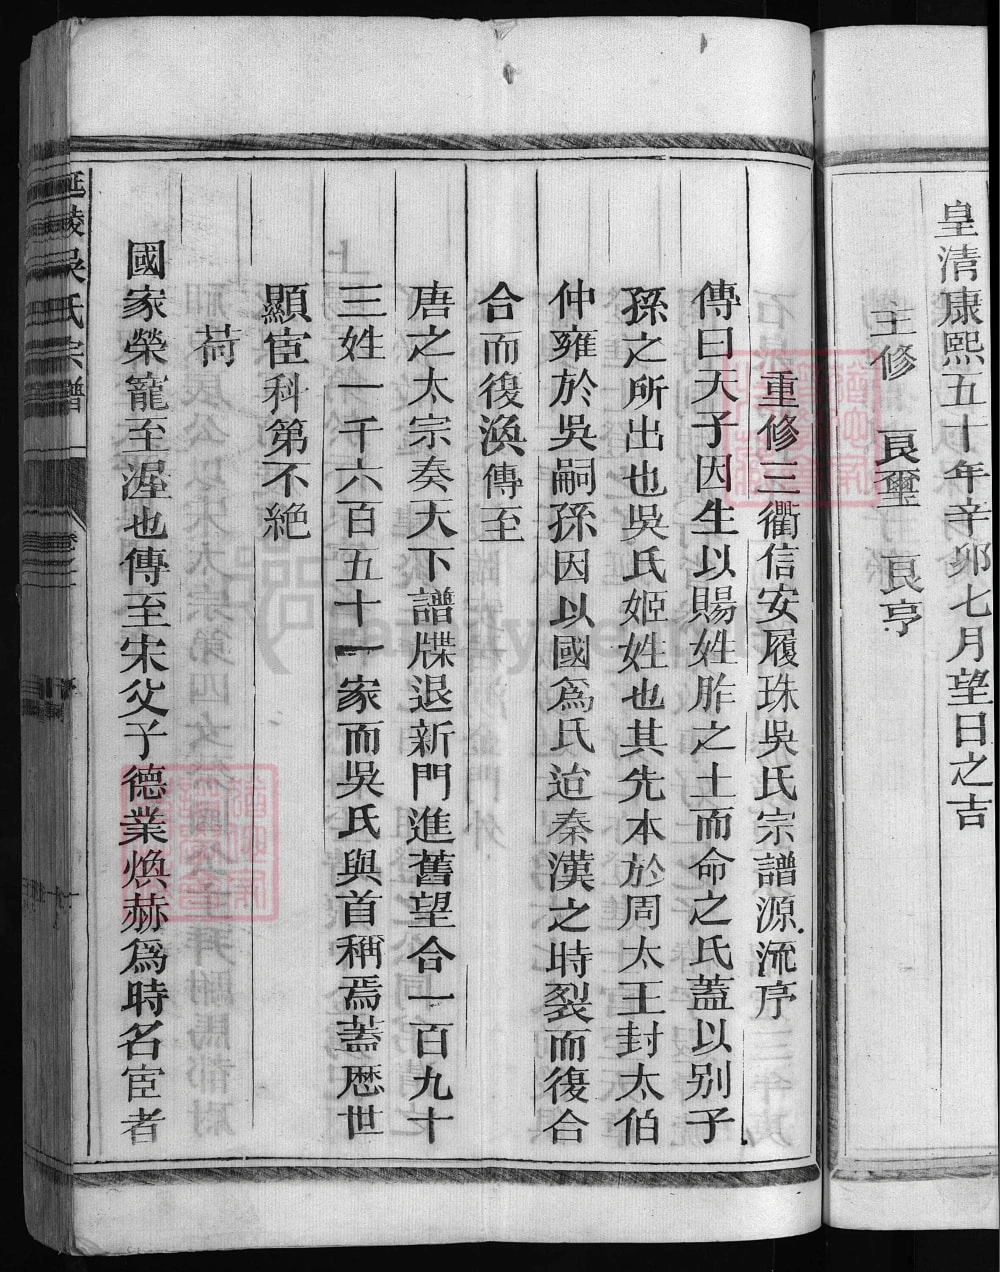 皇清康熙五十年辛卯七月望日之吉
主修 艮璽 艮亨
重修三衢信安履珠吳氏宗譜源流序
傳曰天子因生以賜姓胙之土而命之氏蓋以別子
孫之所出也吳氏姬姓也其先本於周太王封太伯
仲雍於吳嗣孫因以國爲氏迨秦漢之時裂而復合
合而復渙傳至
唐之太宗奏天下譜牒退新門進舊望合一百九十
三姓一千六百五十一家而吳氏與首稱焉蓋歷世
顯宦科第不絶
荷
國家榮寵至渥也傳至宋父子德業煥赫爲時名宦者
延陵吳氏宗譜